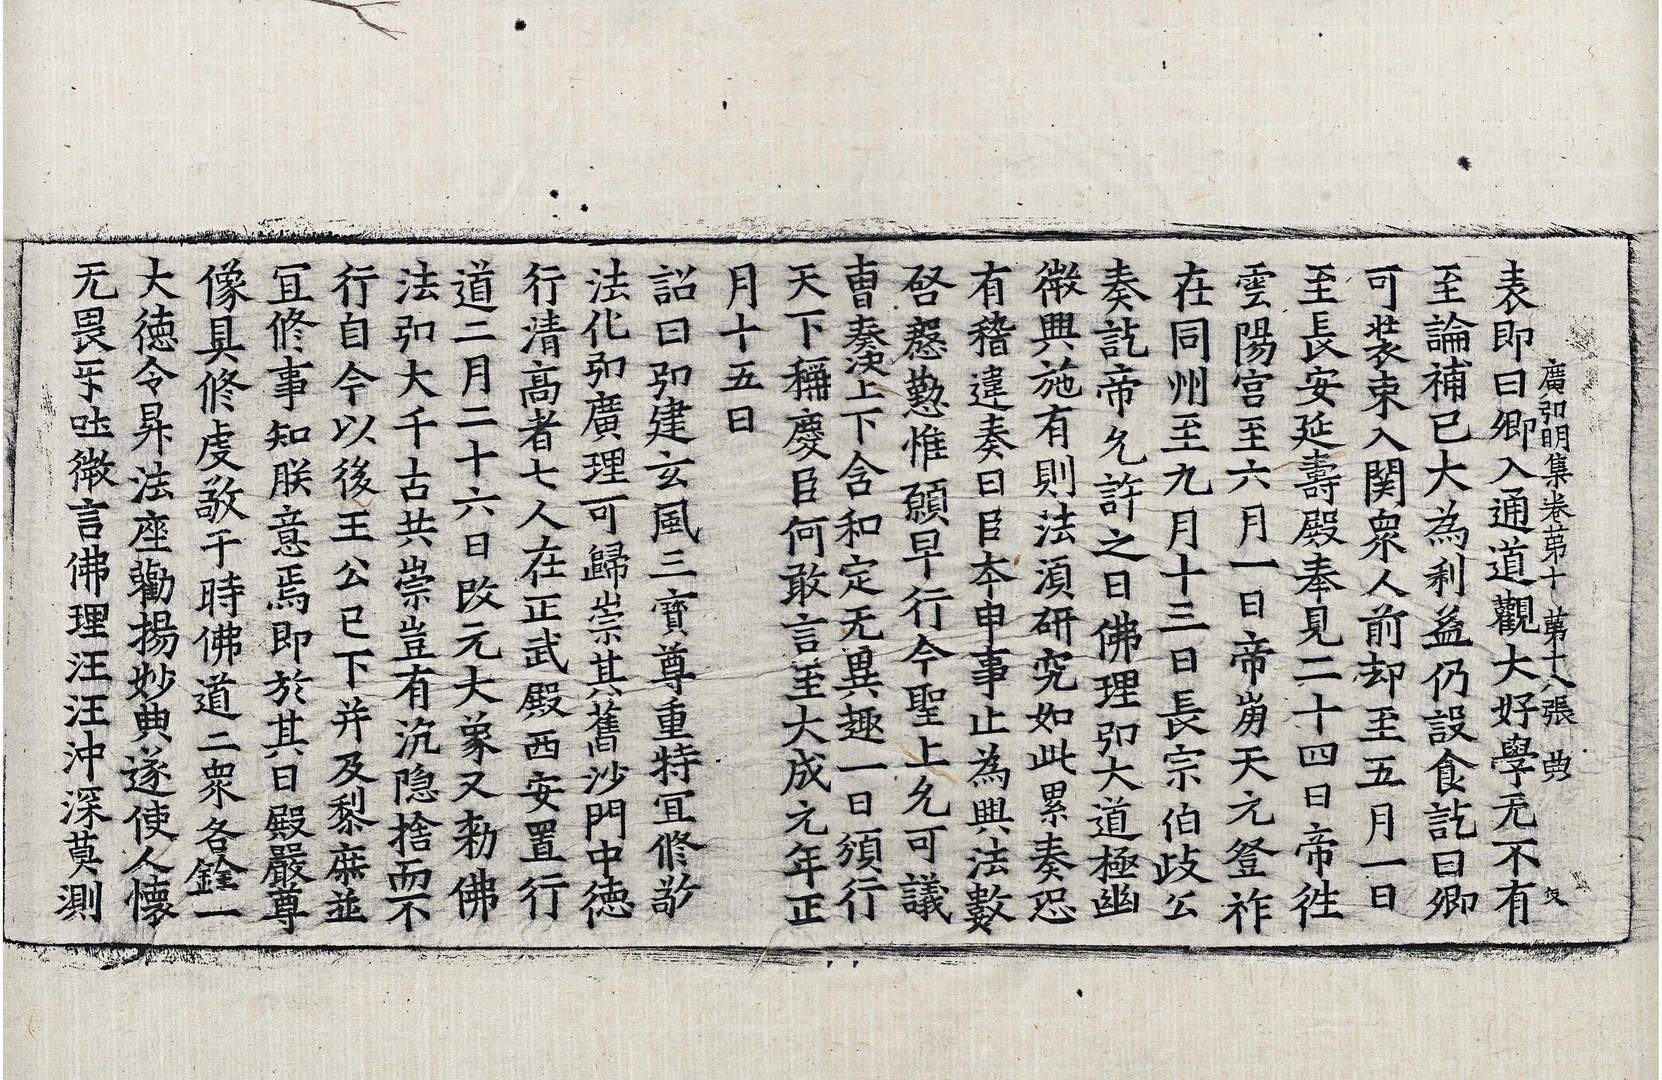 廣弘明集卷第十 第十八張 典
表即曰卿入通道觀大好學无不有
至論補已大為利益仍設食訖曰卿
可裝束入関衆人前却至五月一日
至長安延壽殿奉見二十四日帝徃
雲陽宫至六月一日帝崩天元登祚
在同州至九月十三日長宗伯歧公
奏訖帝允許之曰佛理弘大道極幽
微興施有則法湏研究如此累奏恐
有稽違奏曰臣本申事止為興法數
啓慇懃惟願早行今聖上允可議
曹奏決上下含和定无異趣一日頒行
天下稱慶臣何敢言至大成元年正
月十五日
詔曰弘建玄風三寶尊重特冝修敬
法化弘廣理可歸崇其舊沙門中德
行清高者七人在正武殿西安置行
道二月二十六日改元大象又勑佛
法弘大千古共崇豈有沉隐捨而不
行自今以後王公已下并及黎庶並
冝修事知朕意焉即於其日殿嚴尊
像具修虔敬于時佛道二衆各銓一
大德令昇法座勸揚妙典遂使人懷
无畏伻吐微言佛理汪汪沖深莫測